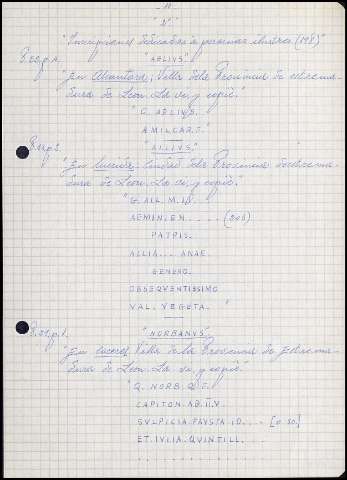 - 11 -
" 2ª"
"Inscripciones dedicadas a personas ilustres (198)"
"AELIVS"
"En Alcantara, Villa de la Provincia de estrema-
dura de Leon. La vi, y copie."
"C. AELIVS.
AMILCAR.F."
"ALLIVS."
"En Ciudad de la Provincia de estrema-
dura de Leon. La vi, y copie."
"G. ALL. M. LV.
AEMIN. EN. . . . . (200)
PATRIS.
ALLIA... ANAE.
GENERO.
OBSEQVENTISSIMO
VAL. VEGETA. "
"NORBANVS"
"En Villa de la Provincia de Estrema-
dura de Leon. La vi, y copie"
"Q. NORB. Q. F.
CAPITON. AB. II. V.
SVLPICIA. FAVSTA. ID... [o so]
ET. IVLIA. QVINTILL. . .
. . . . . . . . . . . . .